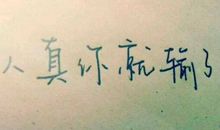 人真你就输了